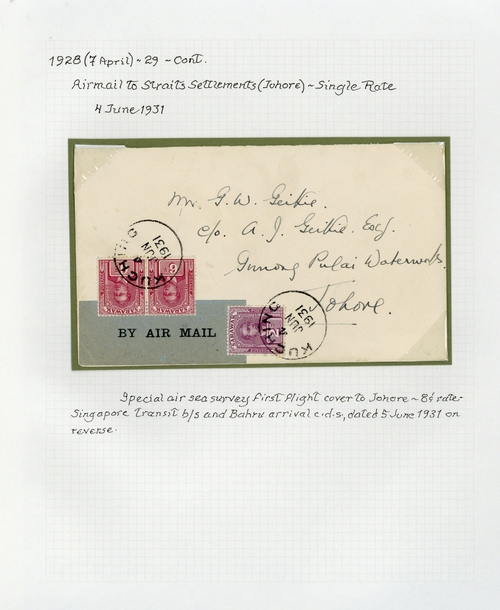 1928 (7 April) ~ 29 ~ Cont.
Airmail to Straits Settlements (Johore) ~ Single Rate
4 June 1931
Mr. G. W. Geikie.
c/o. A. J. Geikie. Esq.
Gunong Pulai Waterworks.
Johore.
KUCHING
4
JUN
1931
KUCHING
4
JUN
1931
SARAWAK
SARAWAK
SARAWAK
BY AIR MAIL
Special air sea survey first flight cover to Johore ~ 8¢ rate~
Singapore transit b/s and Bahru arrival c.d.s., dated 5 June 1931 on
reverse.